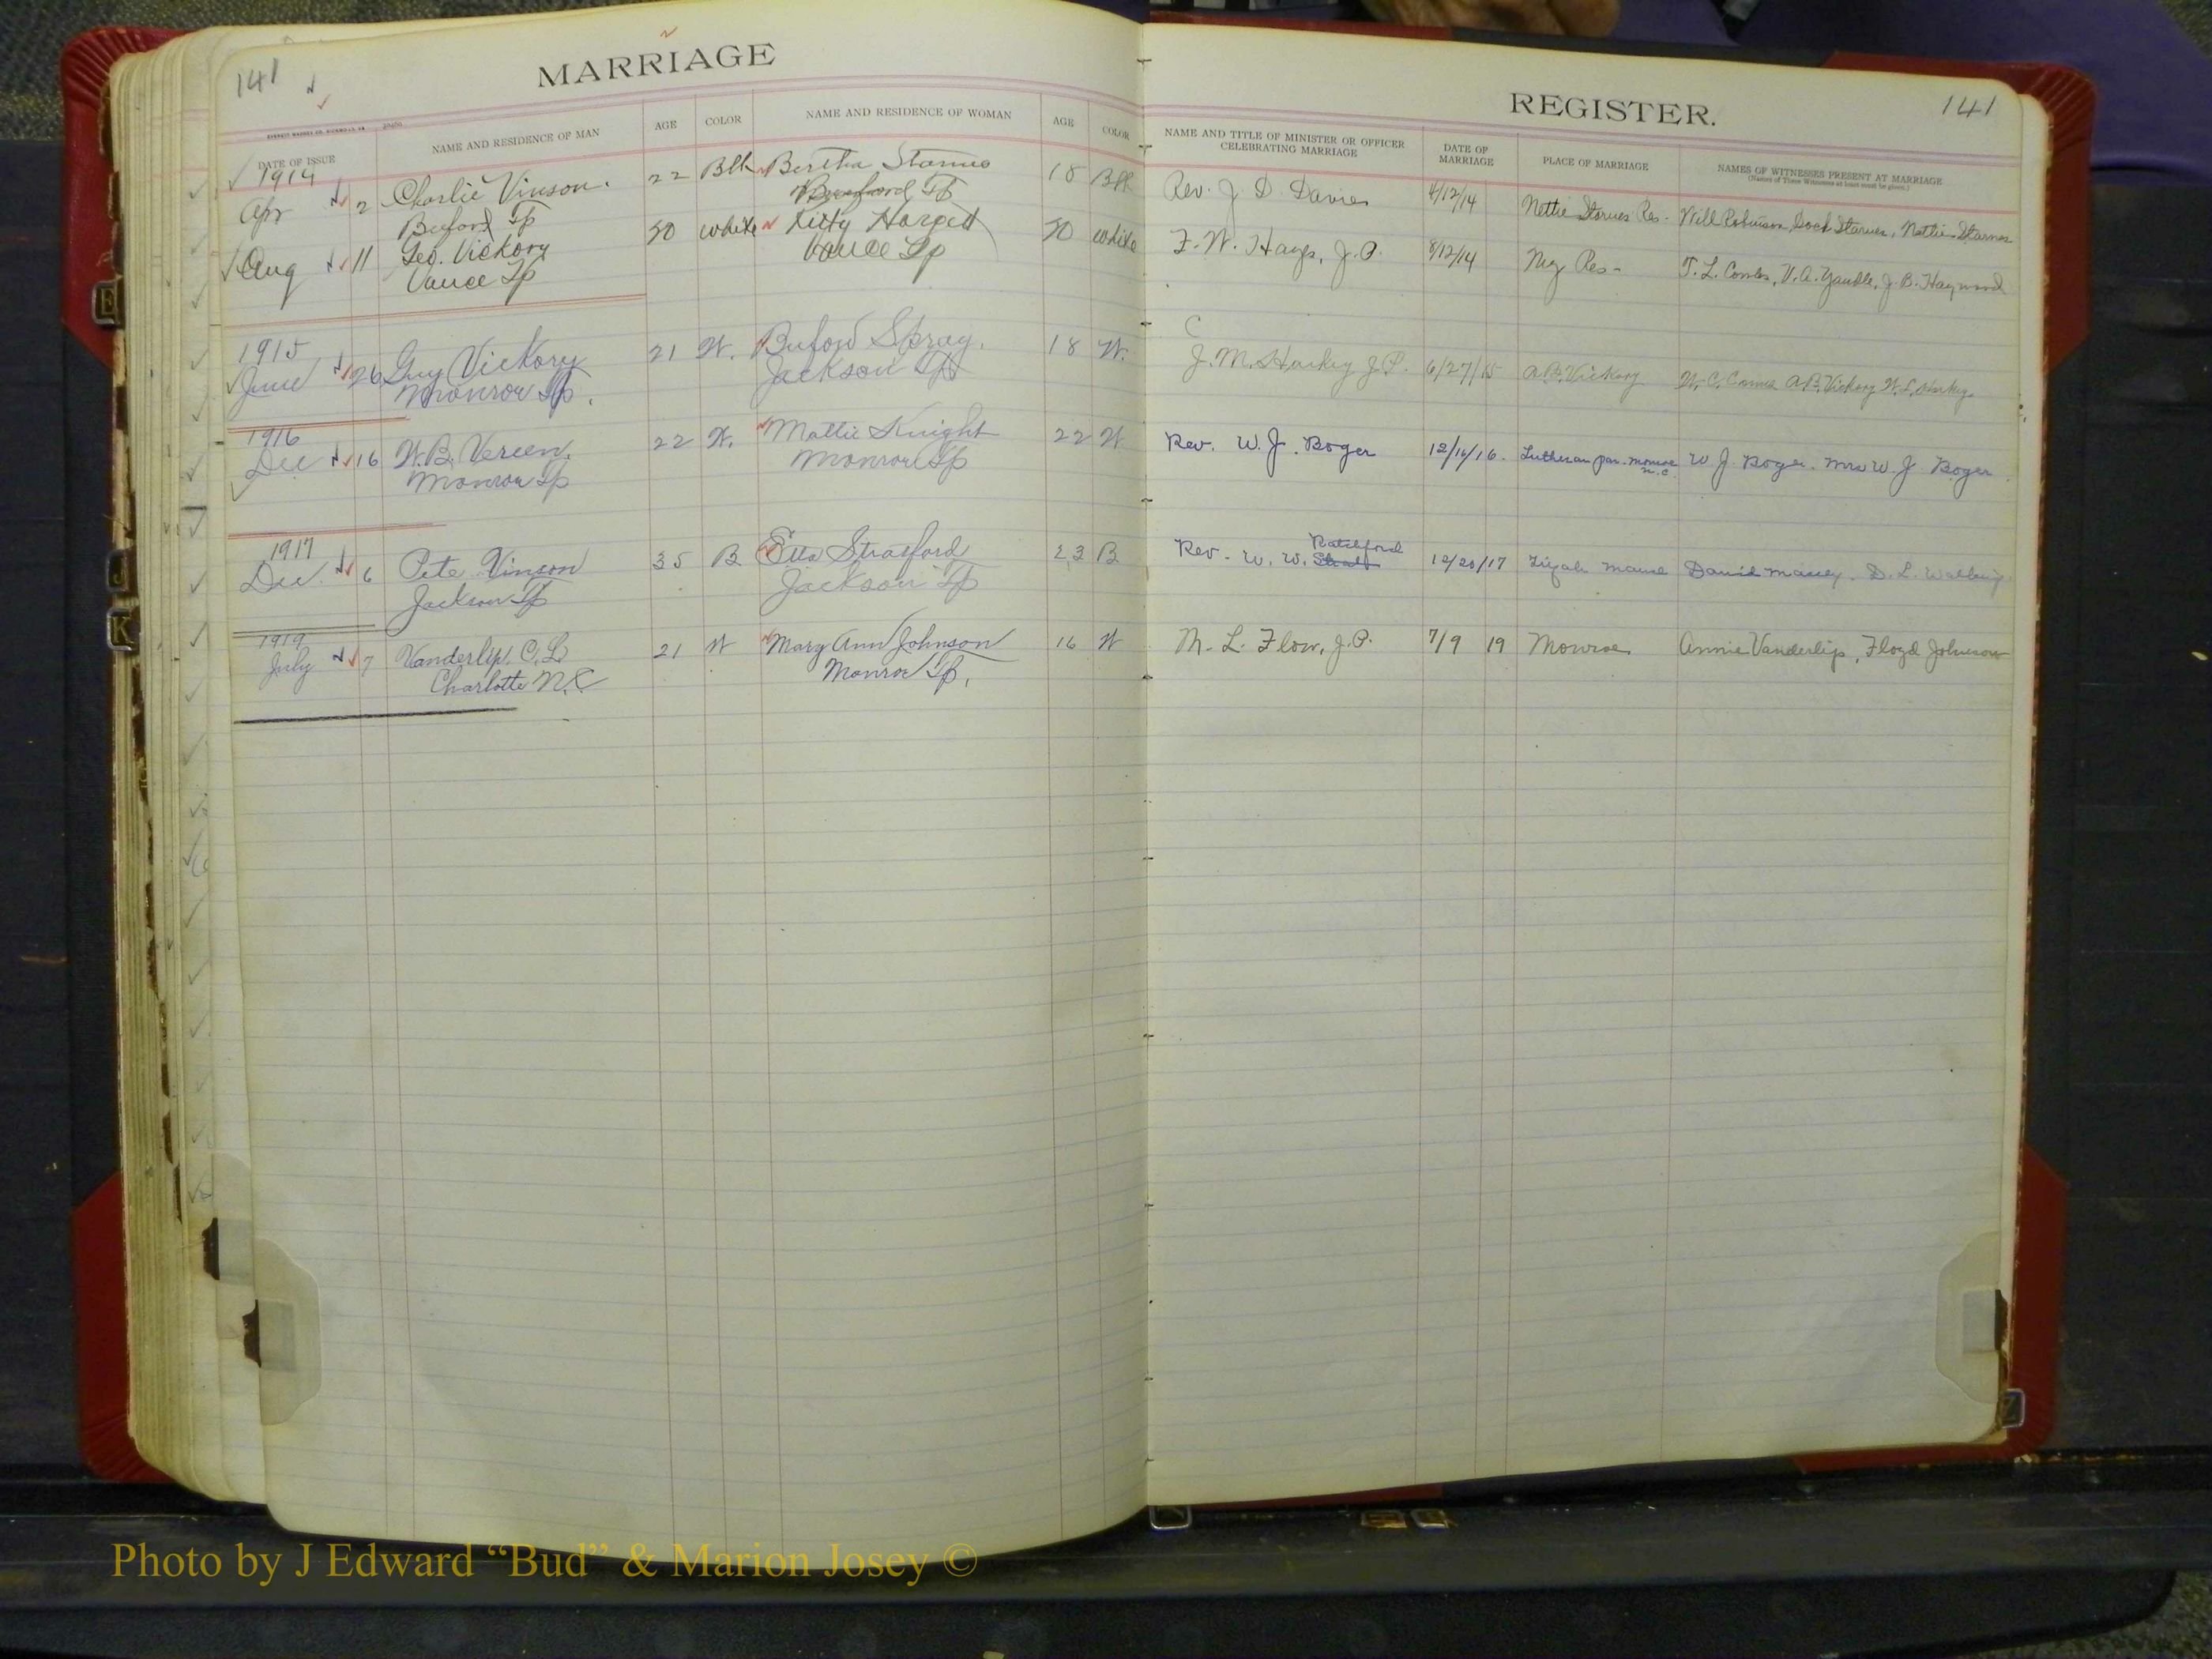 141
MARRIAGE
DATE OF ISSUE NAME AND RESIDENCE OF MAN AGE COLOR NAME AND RESIDENCE OF WOMAN AGE COLOR
1914
Apr 2 Charlie Vinson. 22 Blk Bertha Starnes 18 Blk
Buford Tp Buford Tp
Aug 11 Geo. Vickory 50 white Kitty Hargett 50 white
Vance Tp Vance Tp
1915
June 26 Guy Vickory 21 W. Buford Spray, 18 W.
Monroe Tp. Jackson Tp
1916
Dec 16 W.B. Vereen, 22 W. Mattie Knight 22 W
Monroe Tp Monroe Tp
1917
Dec. 6 Pete Vinson 35 B Etta Strasford 23 B
Jackson Tp Jackson Tp
1919
July 7 Vanderlip, C.L. 21 W Mary Ann Johnson 16 W
Charlotte N.C Monroe Tp,
REGISTER.
141
NAME AND TITLE OF MINISTER OR OFFICER CELEBRATING MARRIAGE DATE OF MARRIAGE PLACE OF MARRIAGE NAMES OF WITNESSES PRESENT AT MARRIAGE
(Names of Three Witnesses at least must be given.)
Rev. J. D. Davies 4/12/14 Nettie Starnes Res- Will Robinson, Dock Starnes, Nettie Starnes
F. W. Hays, J.P. 8/12/14 My Res- T. L. Combs, V. A. Yandle, J. B. Haywood
C
J. M. Harkey J.P. 6/27/15 A.B. Vickory W. C. A.B. Vickory W. L. Harkey
Rev. W. J. Boger 12/16/16. Lutheran par. Monroe W. J. Boger. Mrs W. J Boger
N.C.
Ratchford
Rev- W. W. 12/20/17 David Massey. D. L.
M. L. Flow, J.P. 7/9 19 Monroe Annie Vanderlip, Floyd Johnson
Photo by J Edward “Bud” & Marion Josey ©